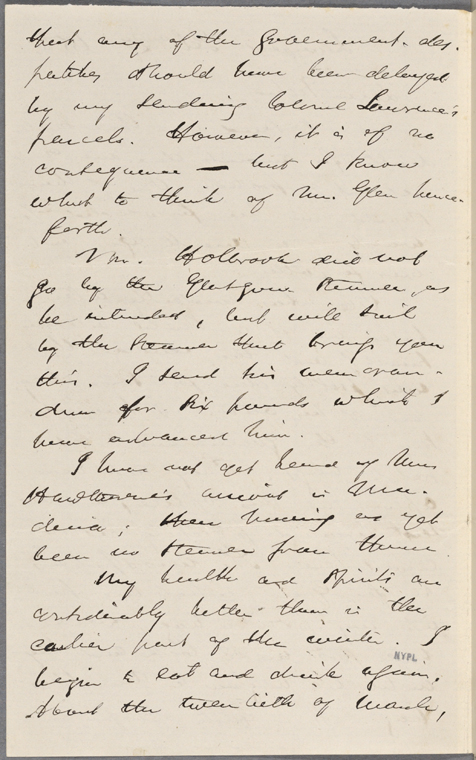 that any of the Government des-
patches should have been delayed
by my sending Colonel Lawrence's
parcels. However, it is of no
consequence — but I know
what to think of Mr. Glen hence-
forth.
Mr. Holbrook did not
go by the Glasgow steamer, as
he intended, but will sail
by the steamer that brings you
this. I send his memoran-
dum for six pounds which I
have advanced him.
I have not yet heard of Mrs
Hawthorne's arrival in Ma-
deira; there having as yet
been no steamer from thence.
My health and spirits are
considerably better than in the
earlier part of the winter. I
begin to eat and drink again.
About the twentieth of March,
NYPL